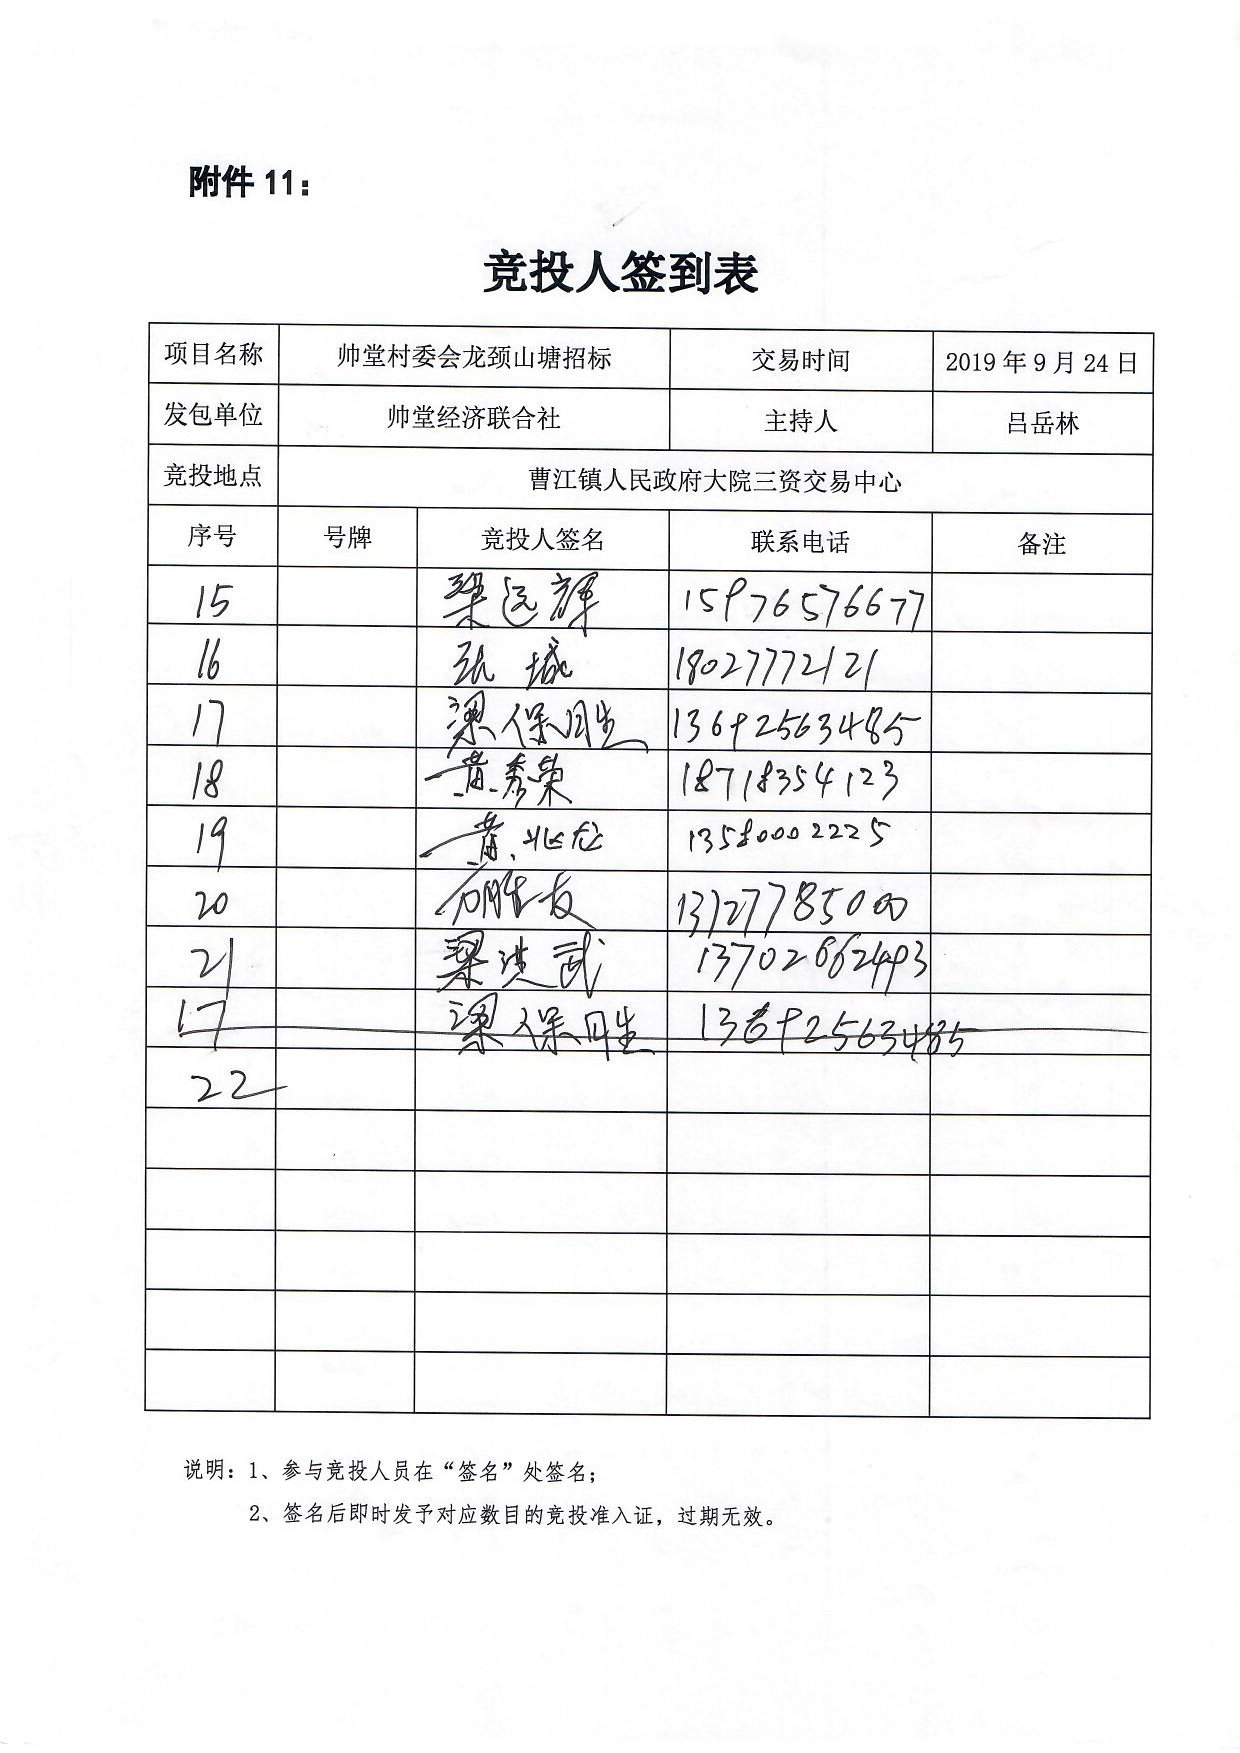 附件 11：
竞投人签到表
项目名称 帅堂村委会龙颈山塘招标 交易时间 2019 年 9 月 24 日
发包单位 帅堂经济联合社 主持人 吕岳林
竞投地点 曹江镇人民政府大院三资交易中心
序号 号牌 竞投人签名 联系电话 备注
15 梁远辉 15976576677
16 城 18027772121
17 梁保月生 13692563485
18 黄秀荣 18718354123
19 黄兆龙 13580002225
20 13727785000
21 梁进武 13702662493
17 梁保月生 13692563485
22
说明：1、参与竞投人员在“签名”处签名；
2、签名后即时发予对应数目的竞投准入证，过期无效。